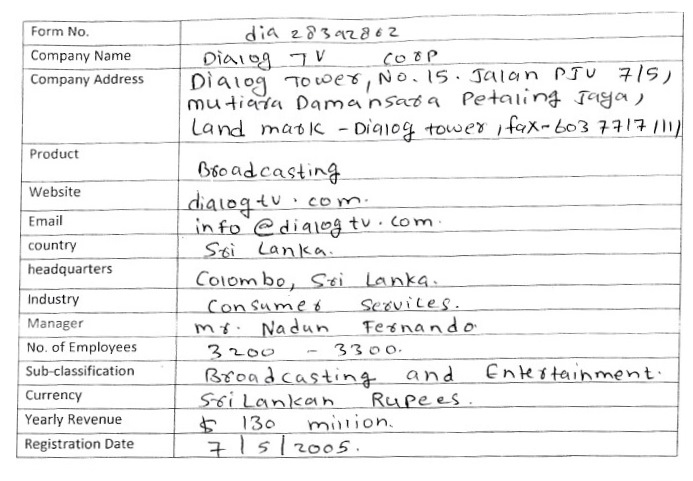 Form No. dia 28392862
Company Name Dialog TV corp
Company Address Dialog Tower, No. 15. Jalan PJU 7/5,
mutiara Damansara Petaling Jaya,
Land mark - Dialog tower, fax-603 7717 1111
Product Broadcasting
Website dialogtv.com.
Email info@dialogtv.com.
country Sri Lanka.
headquarters Colombo, Sri Lanka.
Industry Consumer Services.
Manager mr. Nadun Fernando.
No. of Employees 3200 - 3300.
Sub-classification Broadcasting and Entertainment.
Currency Sri Lankan Rupees.
Yearly Revenue $ 130 million.
Registration Date 7/5/2005.